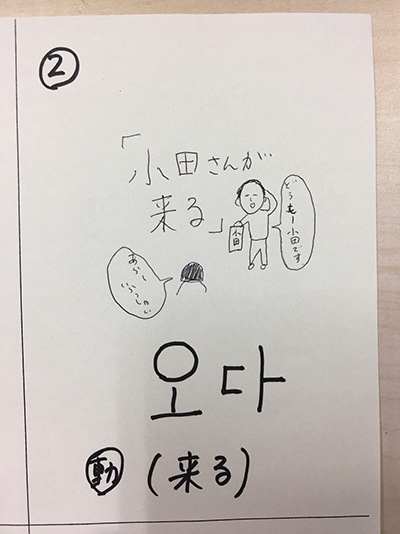 ②
「小田さんが
来る」
どうもー小田です
小田
あらし
いらっしゃい
오다
動 (来る)